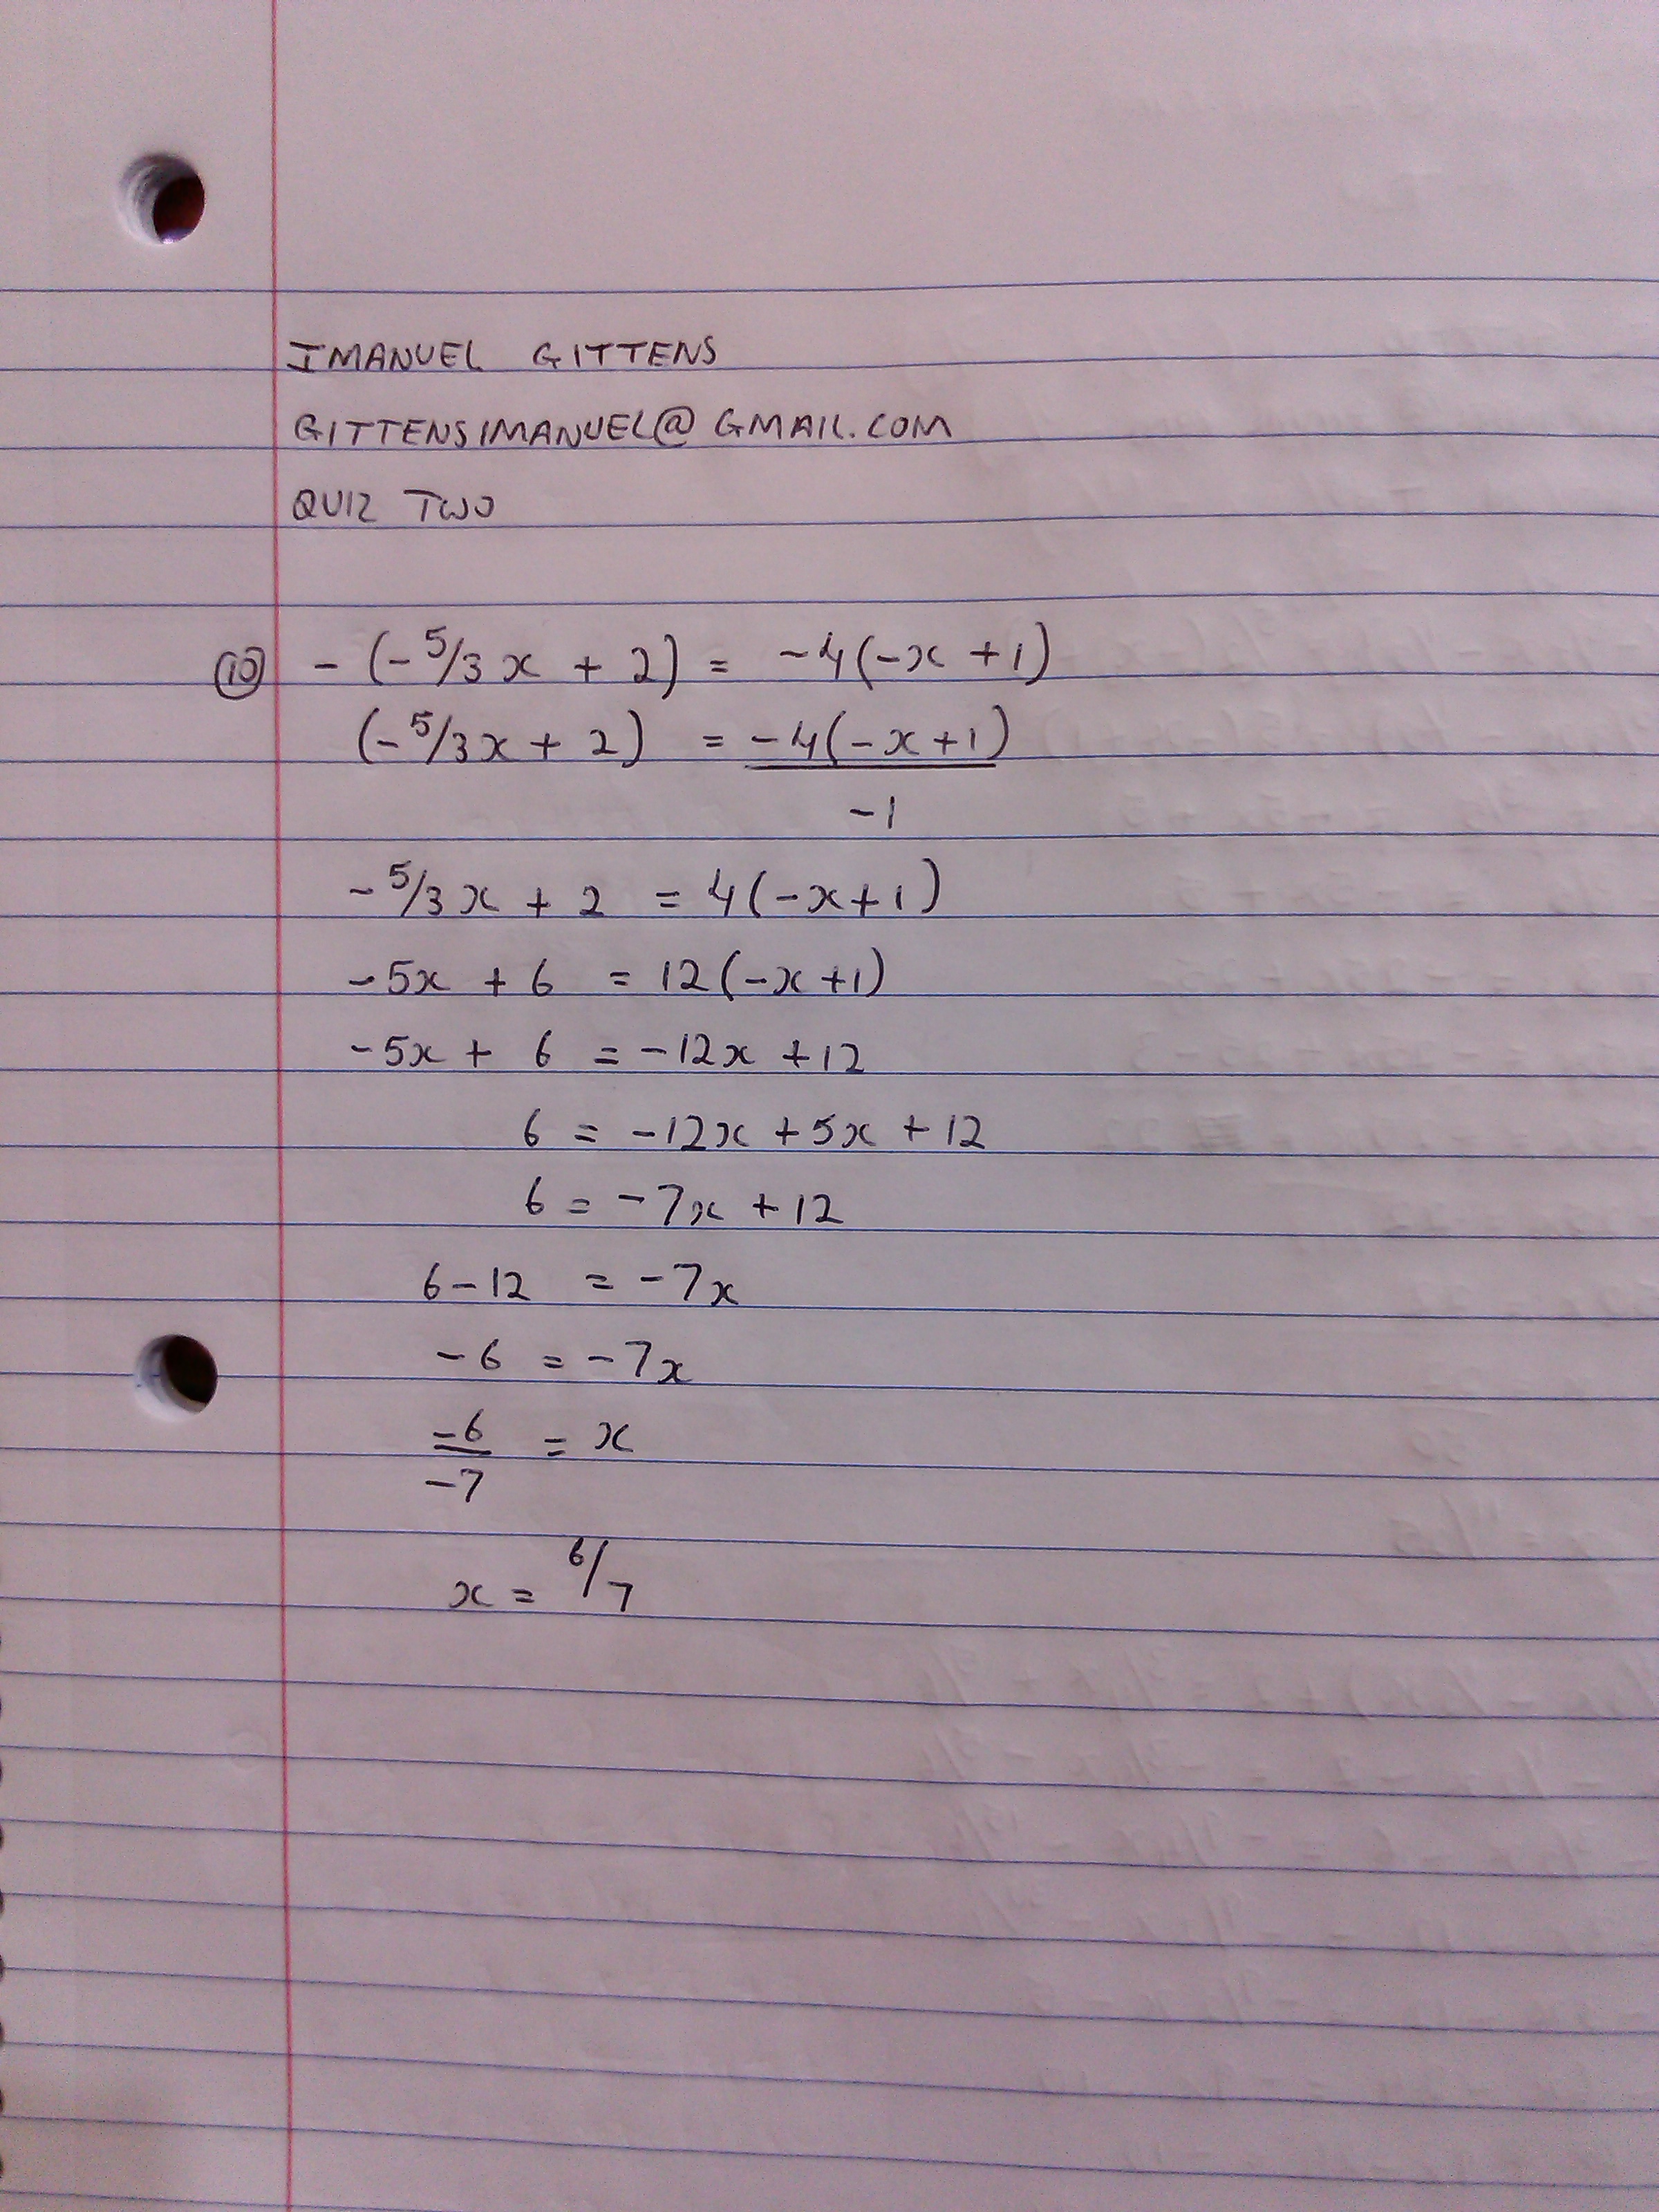 IMANUEL GITTENS
GITTENSIMANUEL@GMAIL.COM
QUIZ TWO
10 -(-5/3x + 2) = -4(-x+1)
(-5/3x + 2) = -4(-x+1)
-1
-5/3x + 2 = 4(-x+1)
-5x + 6 = 12(-x+1)
-5x + 6 = -12x +12
6 = -12x +5x +12
6 = -7x +12
6-12 = -7x
-6 = -7x
-6 = x
-7
x = 6/7